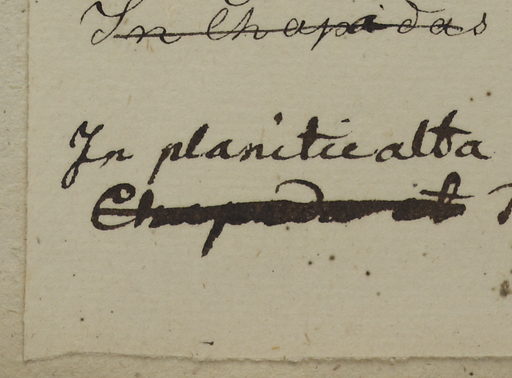 In Chapadas
In planitie alta
Chapada